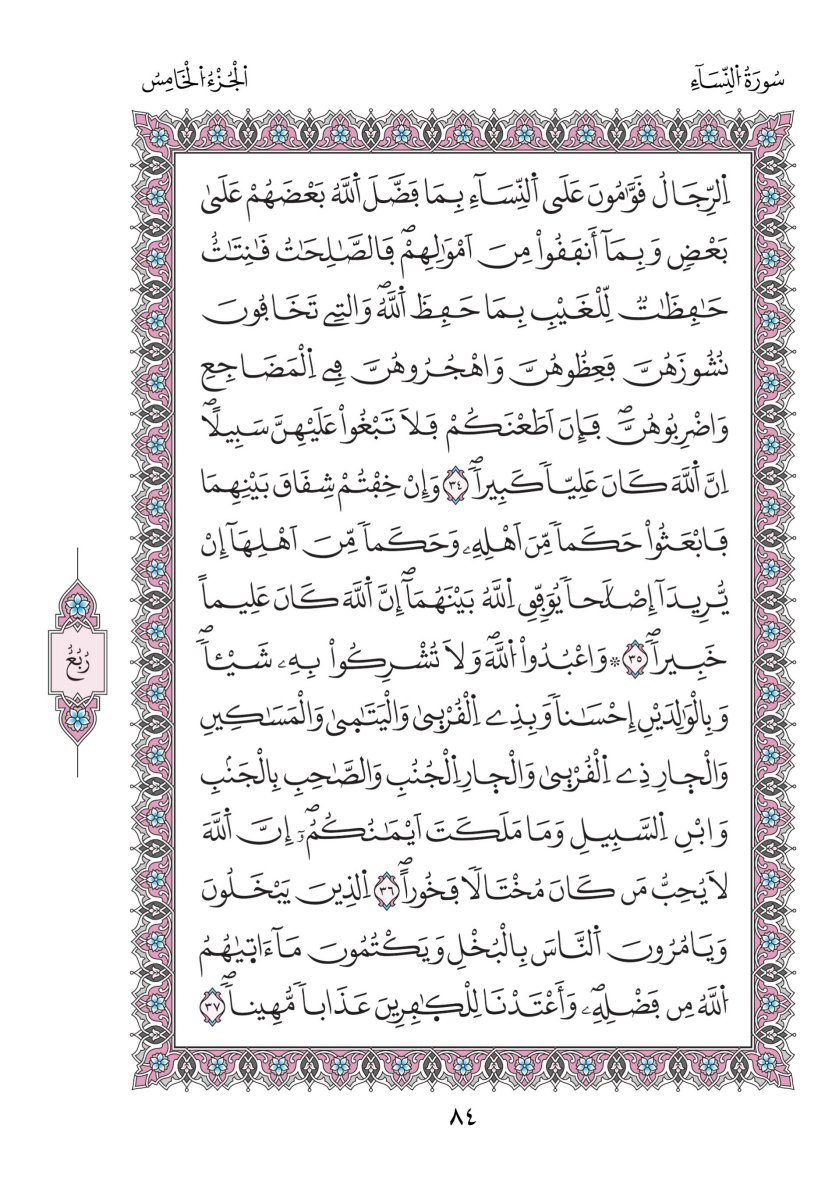 سُورَةُ اُ۬لنِّسَآءِ
اَ۬لْجُزْءُ اُ۬لْخَامِسُ
اِ۬لرِّجَالُ قَوَّٰمُونَ عَلَي اَ۬لنِّسَآءِ بِمَا فَضَّلَ اَ۬للَّهُ بَعْضَهُمْ عَلَيٰ
بَعْضٖ وَبِمَآ أَنفَقُواْ مِنَ اَمْوَٰلِهِمْۖ فَالصَّٰلِحَٰتُ قَٰنِتَٰتٌ
حَٰفِظَٰتٞ لِّلْغَيْبِ بِمَا حَفِظَ اَ۬للَّهُۖ وَالتِے تَخَافُونَ
نُشُوزَهُنَّ فَعِظُوهُنَّ وَاهْجُرُوهُنَّ فِے اِ۬لْمَضَاجِعِ
وَاضْرِبُوهُنَّۖ فَإِنَ اَطَعْنَكُمْ فَلَا تَبْغُواْ عَلَيْهِنَّ سَبِيلاًۖ
اِنَّ اَ۬للَّهَ كَانَ عَلِيّاٗ كَبِيراٗۖ ٣٤ وَإِنْ خِفْتُمْ شِقَاقَ بَيْنِهِمَا
فَابْعَثُواْ حَكَماٗ مِّنَ اَهْلِهِۦ وَحَكَماٗ مِّنَ اَهْلِهَآ إِنْ
يُّرِيدَآ إِصْلَٰحاٗ يُوَفِّقِ اِ۬للَّهُ بَيْنَهُمَآۖ إِنَّ اَ۬للَّهَ كَانَ عَلِيماً
خَبِيراٗۖ ٣٥ ۞ وَاعْبُدُواْ اُ۬للَّهَۖ وَلَا تُشْرِكُواْ بِهِۦ شَيْـٔاٗۖ
وَبِالْوَٰلِدَيْنِ إِحْسَٰناٗ وَبِذِے اِ۬لْقُرْب۪يٰ وَالْيَتَٰم۪يٰ وَالْمَسَٰكِينِ
وَالْج۪ارِ ذِے اِ۬لْقُرْب۪يٰ وَالْج۪ارِ اِ۬لْجُنُبِ وَالصَّٰحِبِ بِالْجَنۢبِ
وَابْنِ اِ۬لسَّبِيلِ وَمَا مَلَكَتَ اَيْمَٰنُكُمُۥٓۖ إِنَّ اَ۬للَّهَ
لَا يُحِبُّ مَن كَانَ مُخْتَالاٗ فَخُوراًۖ ٣٦ اِ۬لذِينَ يَبْخَلُونَ
وَيَامُرُونَ اَ۬لنَّاسَ بِالْبُخْلِ وَيَكْتُمُونَ مَآ ءَات۪يٰهُمُ
اُ۬للَّهُ مِن فَضْلِهِۦۖ وَأَعْتَدْنَا لِلْكٰ۪فِرِينَ عَذَاباٗ مُّهِيناٗۖ ٣٧
رُبُعُ
٨٤